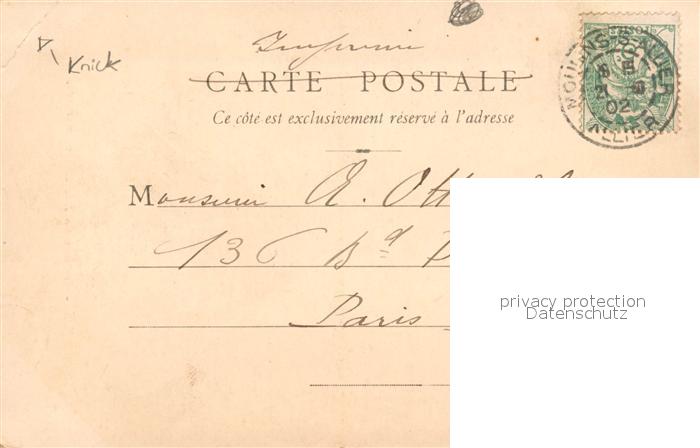 Knick
Imprimé
CARTE POSTALE
Ce côté est exclusivement réservé à l'adresse
Monsieur A. Ott
136 Bd
Paris
MOULINS-S-ALLIER
02
ALLIER
privacy protection
Datenschutz